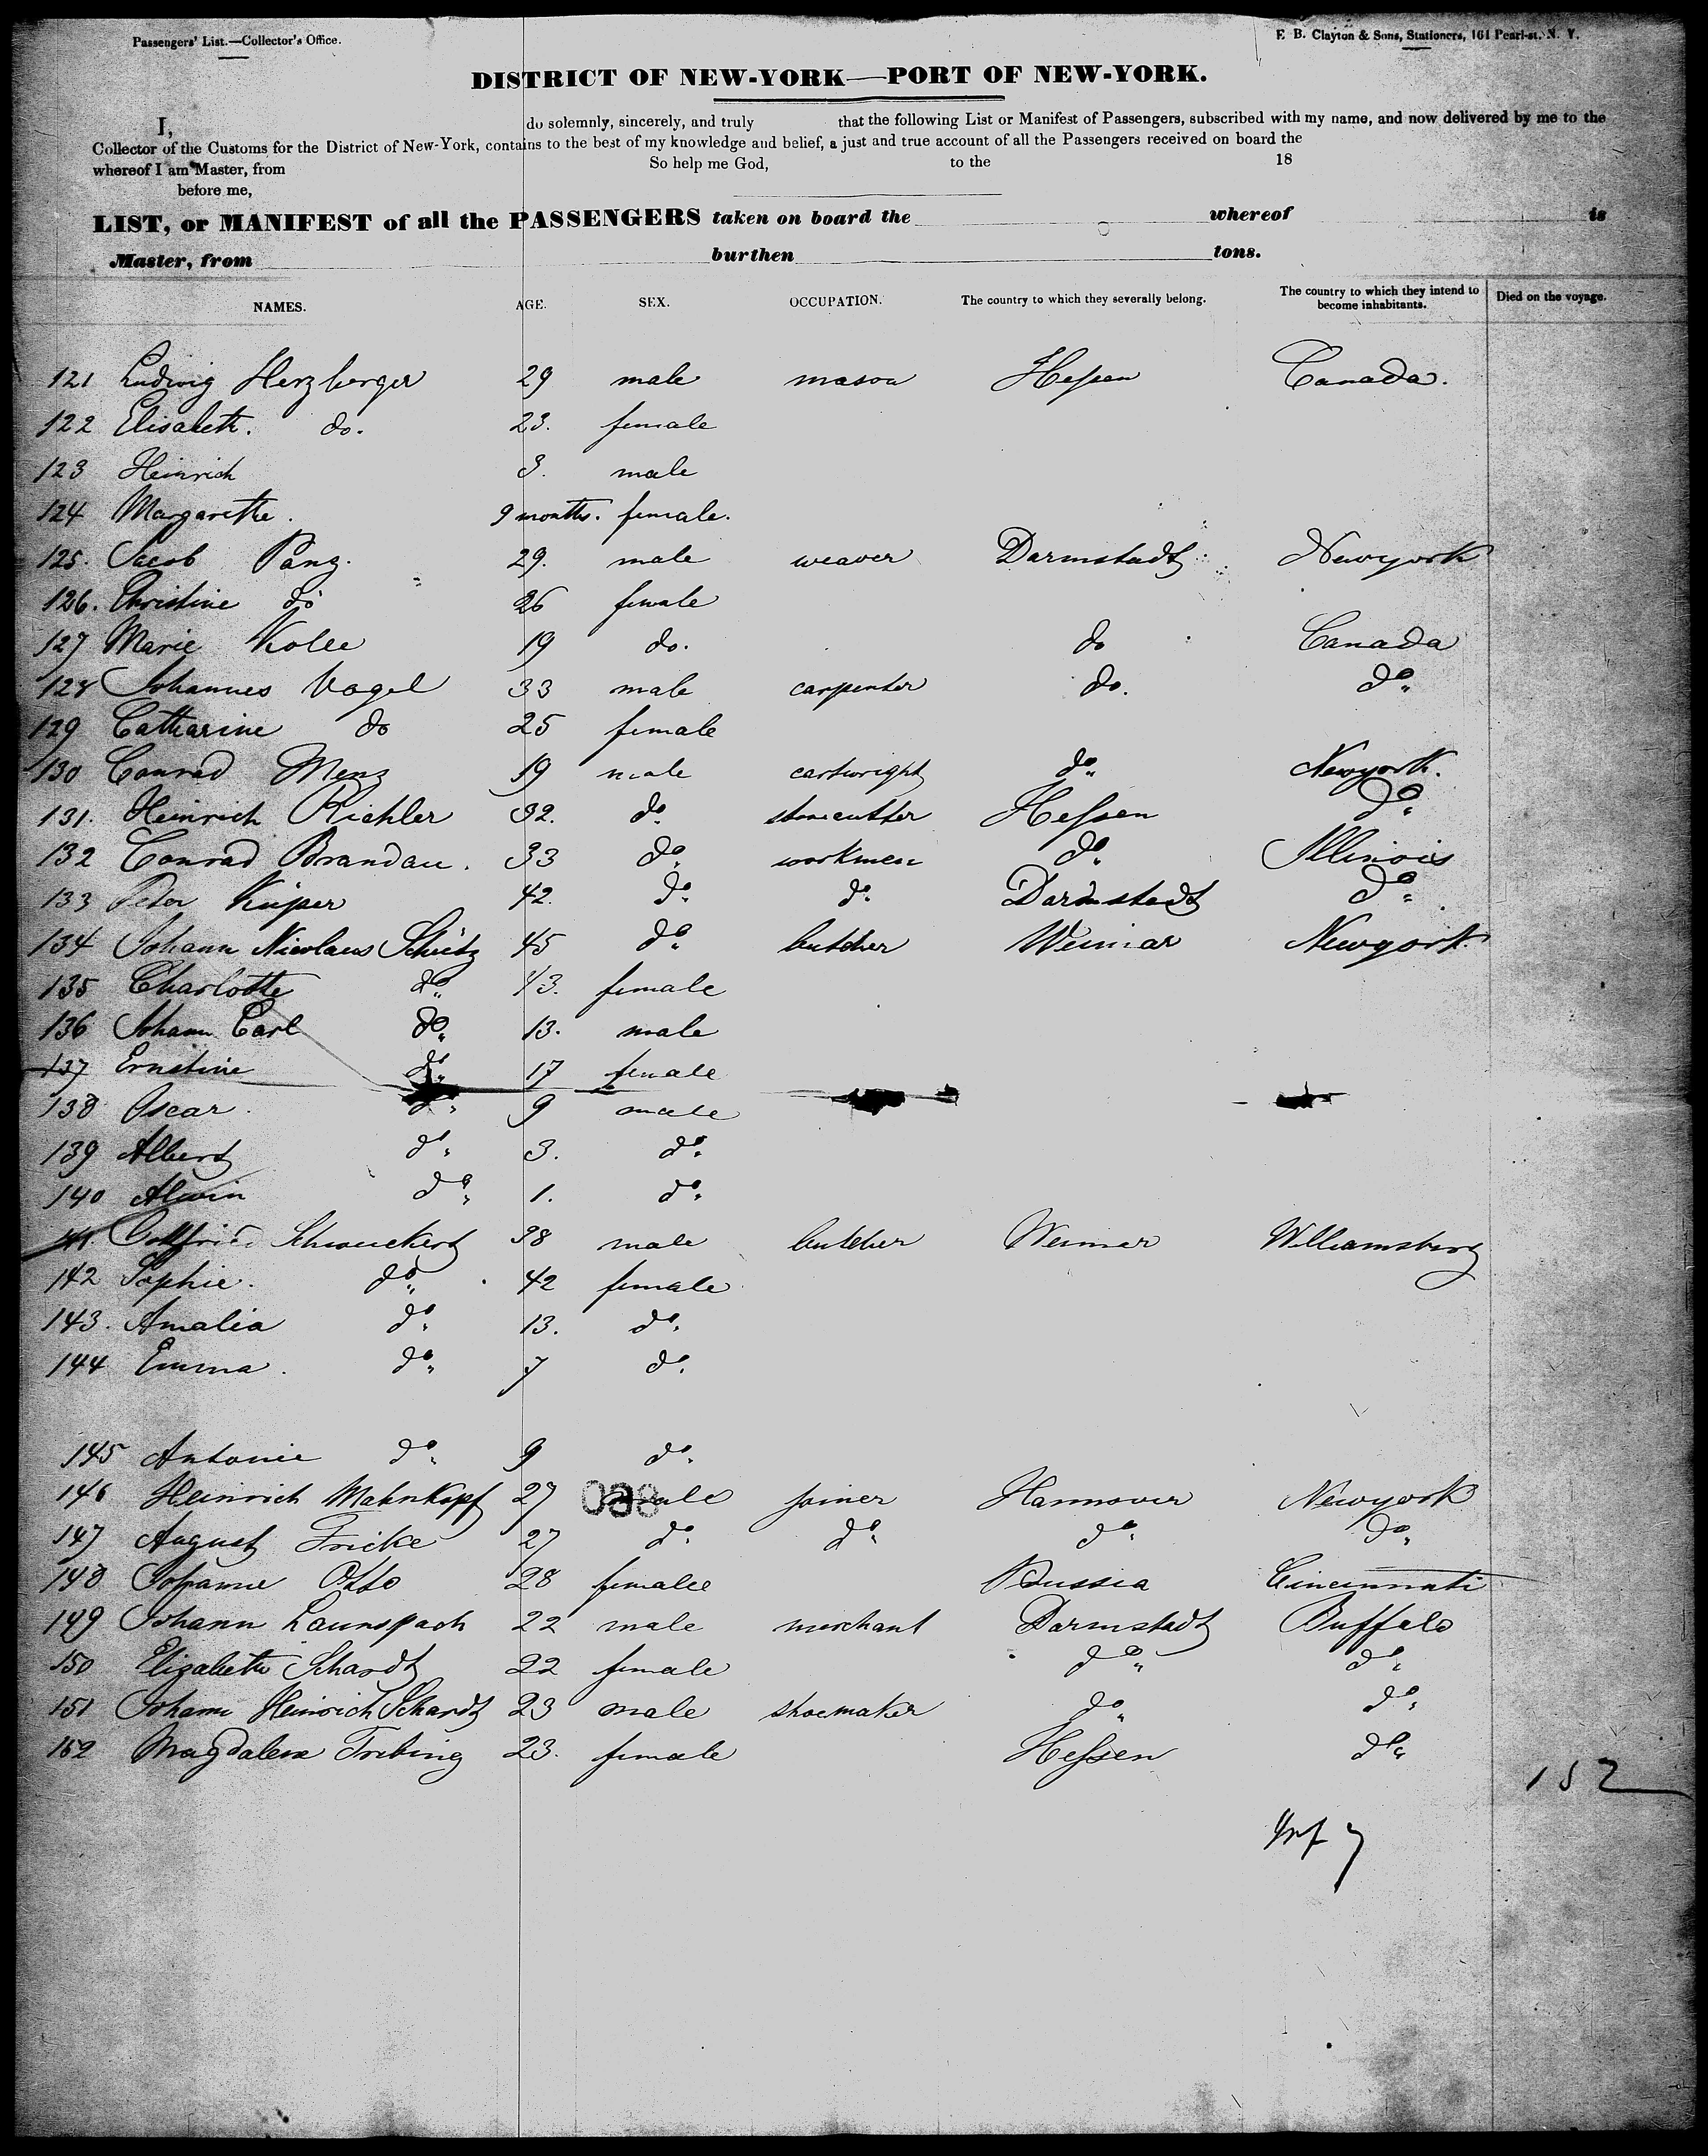 Passengers' List.—Collector's Office.
E. B. Clayton & Sons, Stationers, 161 Pearl-st. N. Y.
DISTRICT OF NEW-YORK—PORT OF NEW-YORK.
I, do solemnly, sincerely, and truly that the following List or Manifest of Passengers, subscribed with my name, and now delivered by me to the
Collector of the Customs for the District of New-York, contains to the best of my knowledge and belief, a just and true account of all the Passengers received on board the
whereof I am Master, from So help me God, to the 18
before me,
LIST, or MANIFEST of all the PASSENGERS taken on board the whereof is
Master, from burthen tons.
NAMES. AGE. SEX. OCCUPATION. The country to which they severally belong. The country to which they intend to become inhabitants. Died on the voyage.
121 Ludwig Herzberger 29 male mason Hessen Canada.
122 Elisabeth. do. 23. female
123 Heinrich 3. male
124 Margarethe. 9 months. female.
125. Jacob Panz. 29. male weaver Darmstadt Newyork
126. Christine do 26 female
127 Marie Kolee 19 do. do Canada
128 Johannes Vogel 33 male carpenter do. do
129 Catharine do 25 female
130 Conrad Menz 19 male cartwright do Newyork.
131. Heinrich Richler 32. do stonecutter Hessen do
132 Conrad Brandau. 33 do workmen do Illinois
133 Peter Küper 42. do do Darmstadt do
134 Johann Nicolaus Schütz 45 do butcher Weimar Newyork
135 Charlotte do 43. female
136 Johann Carl do 13. male
137 Ernstine do 17 female
138 Oscar. do 9 male
139 Albert do 3. do
140 Alwin do 1. do
141. Gottfried Schwuckert 38 male butcher Weimar Williamsburg
142 Sophie. do 42 female
143. Amalia do 13. do
144 Emma. do 7 do
145 Antonie do 9 do
146 Heinrich Mahnkopf 27 male joiner Hannover Newyork
147 August Fricke 27 do do do do
148 Johanne Otto 28 female Prussia Cincinnati
149 Johann Launspach 22 male merchant Darmstadt Buffalo
150 Elizabeth Schardt 22 female do do
151 Johann Heinrich Schardt 23 male shoemaker do do
152 Magdalena Trebing 23. female Hessen do
152